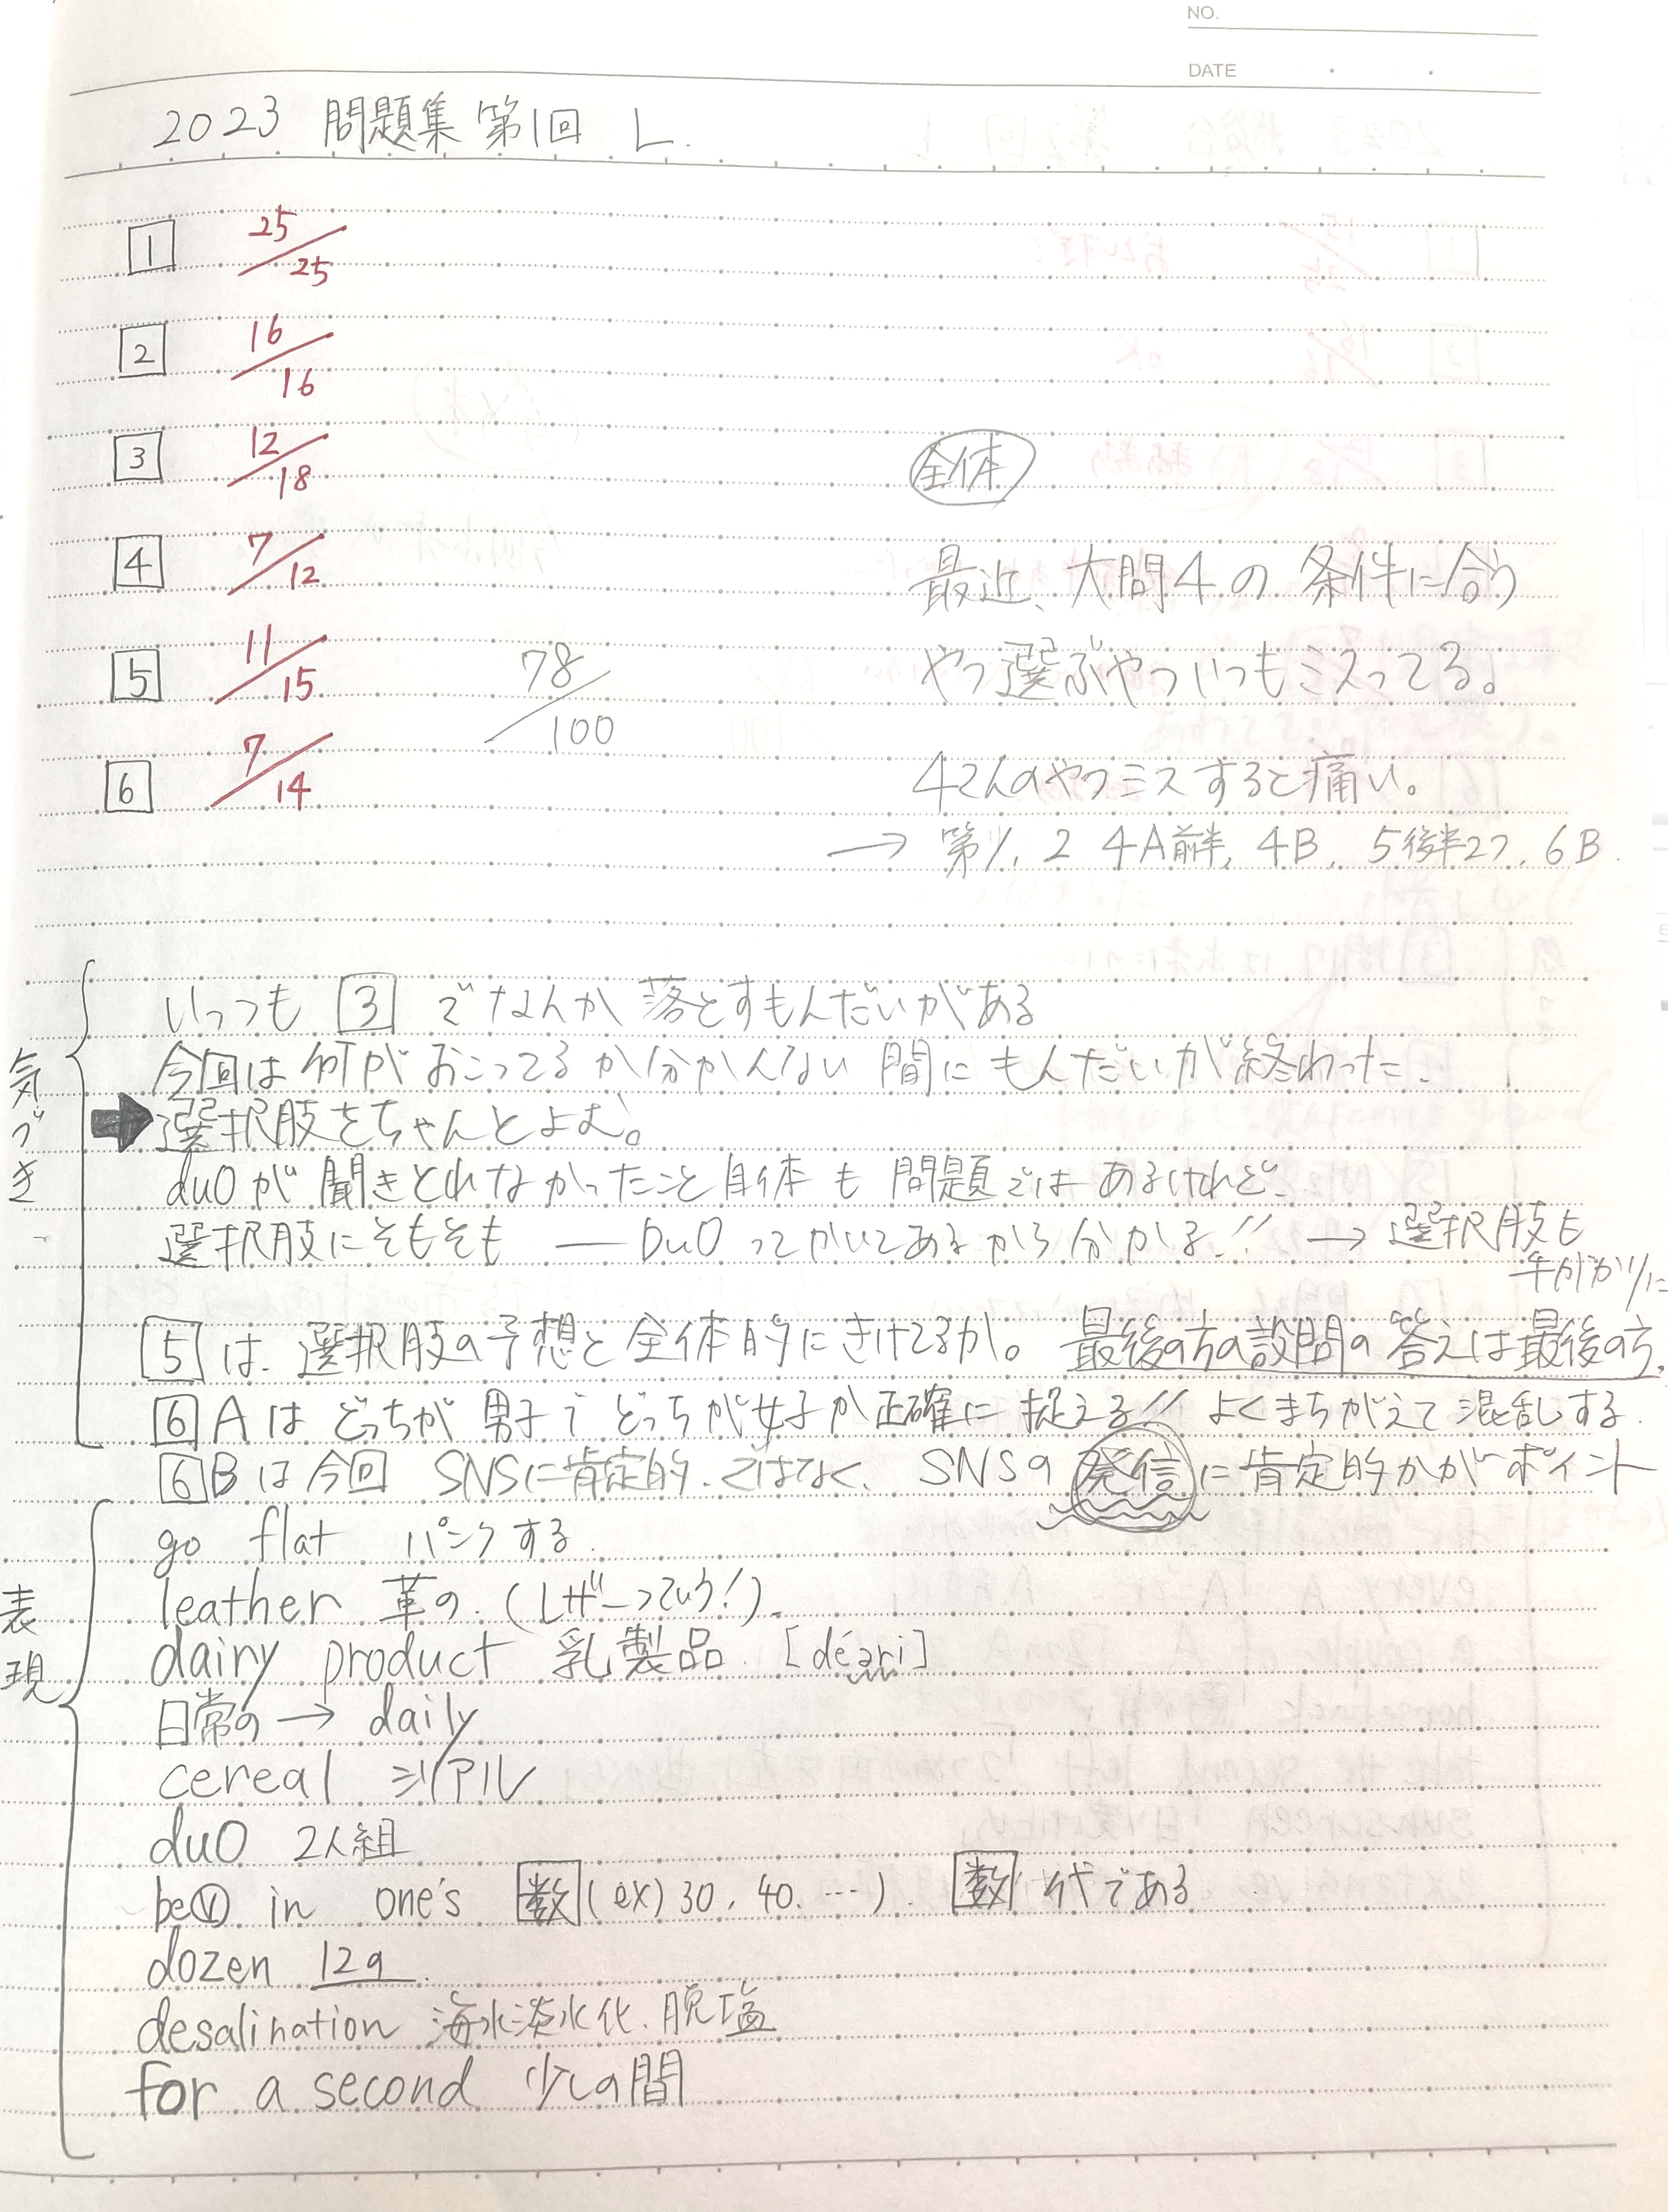 NO.
DATE
2023 問題集 第1回 L.
1 25/25
2 16/16
3 12/18
4 7/12
5 11/15
6 7/14
78/100
全体
最近、大問4の 条件に合う
やつ選ぶやついつもミスってる。
4てんのやつミスすると痛い。
→ 第1、2 4A前半、4B、5後半2つ、6B.
気づき
いっつも 3 でなんか 落とすもんだいがある
今回は 何が おこってるか分かんない 間に もんだいが終わった.
➡選択肢をちゃんとよむ。
duoが 聞きとれなかったこと自体も 問題ではあるけれど、
選択肢にそもそも ― Duo ってかいてあるから分かる!! → 選択肢も
手がかりに
5 は、選択肢の予想と 全体的にきけてるか。 最後の方の設問の 答えは最後の方.
6 Aは どっちが 男子で どっちが女子か正確に 捉える!! よくまちがえて 混乱する.
6 Bは今回 SNSに肯定的、ではなく、 SNSの 発信 に肯定的かがポイント
表現
go flat パンクする.
leather 革の. (レザーっていう!).
dairy product 乳製品. [déəri]
日常の → daily
cereal シリアル
duo 2人組
beⓋ in one's 数 (ex) 30, 40, …). 数 代である
dozen 12の.
desalination 海水淡水化、脱塩
for a second 少しの間